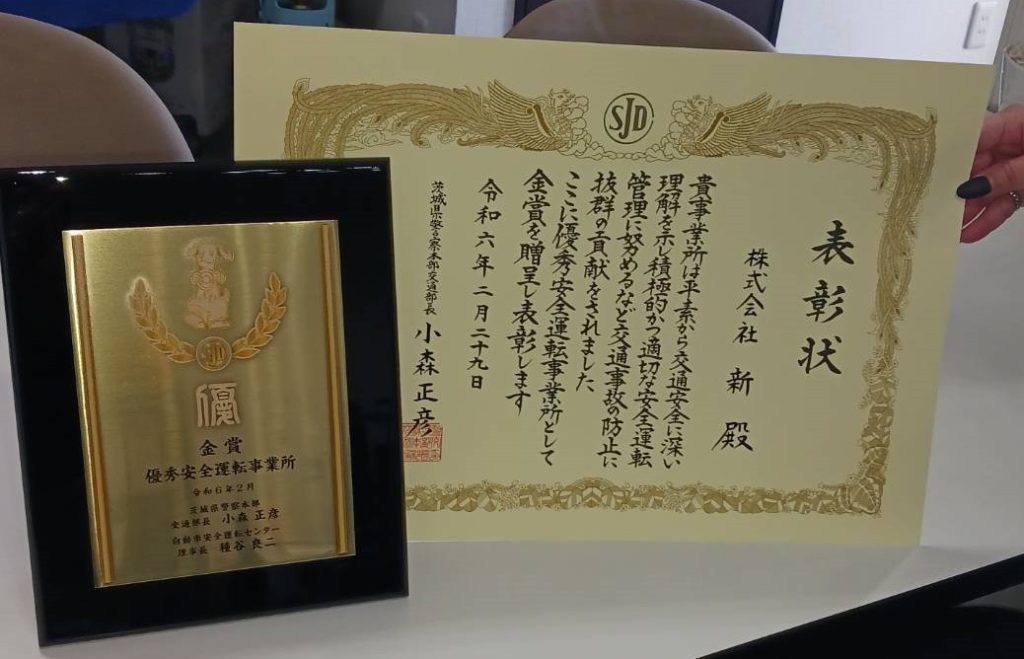 SJD
表彰状
株式会社 新 殿
貴事業所は平素から交通安全に深い
理解を示し積極的かつ適切な安全運転
管理に努めるなど交通事故の防止に
抜群の貢献をされました
ここに優秀安全運転事業所として
金賞を贈呈し表彰します
令和六年二月二十九日
茨城県警察本部交通部長 小森正彦
SJD
優
金賞
優秀安全運転事業所
令和6年2月
茨城県警察本部
交通部長 小森 正彦
自動車安全運転センター
理事長 種谷 良二